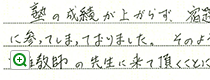 塾の成績が上がらず、宿題
に参ってしまっておりました。そのよ
教師の先生に来て頂くことに